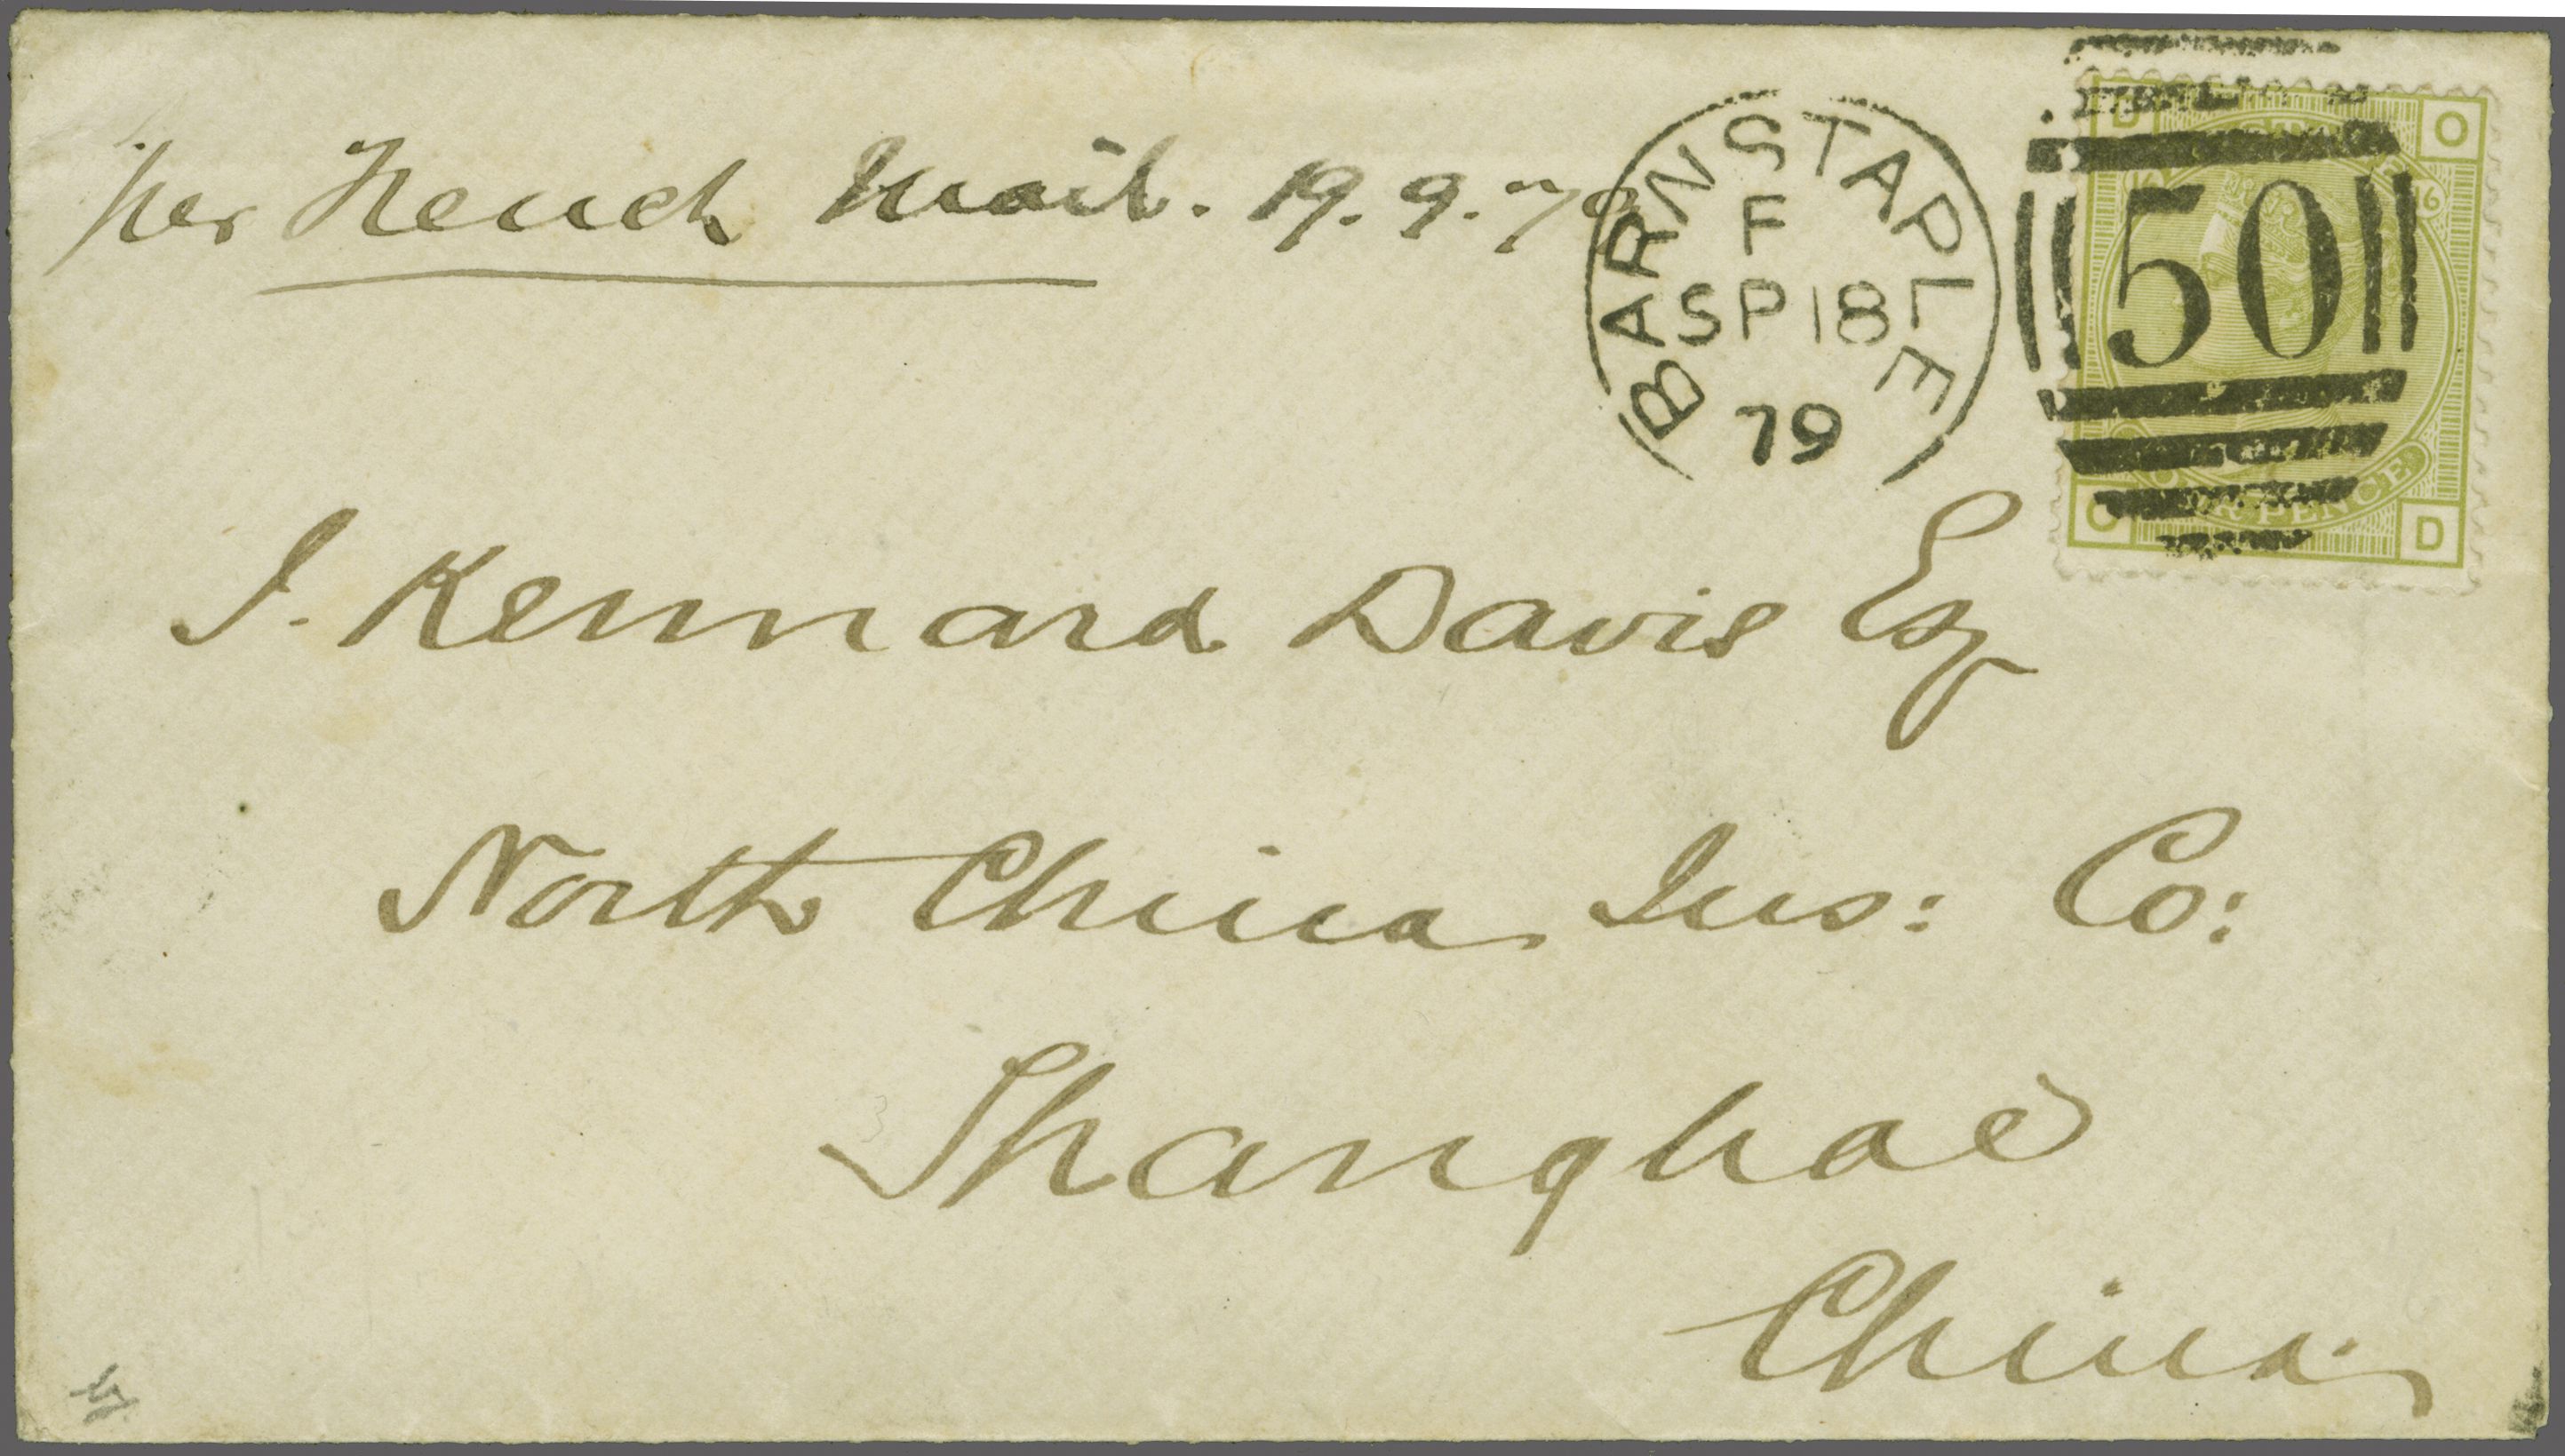 per French Mail. 19. 9. 79
BARNSTAPLE
F
SP 18
79
50
O
16
PENCE
O D
J. Kennard Davis Esq
North China Ins: Co:
Shanghae
China